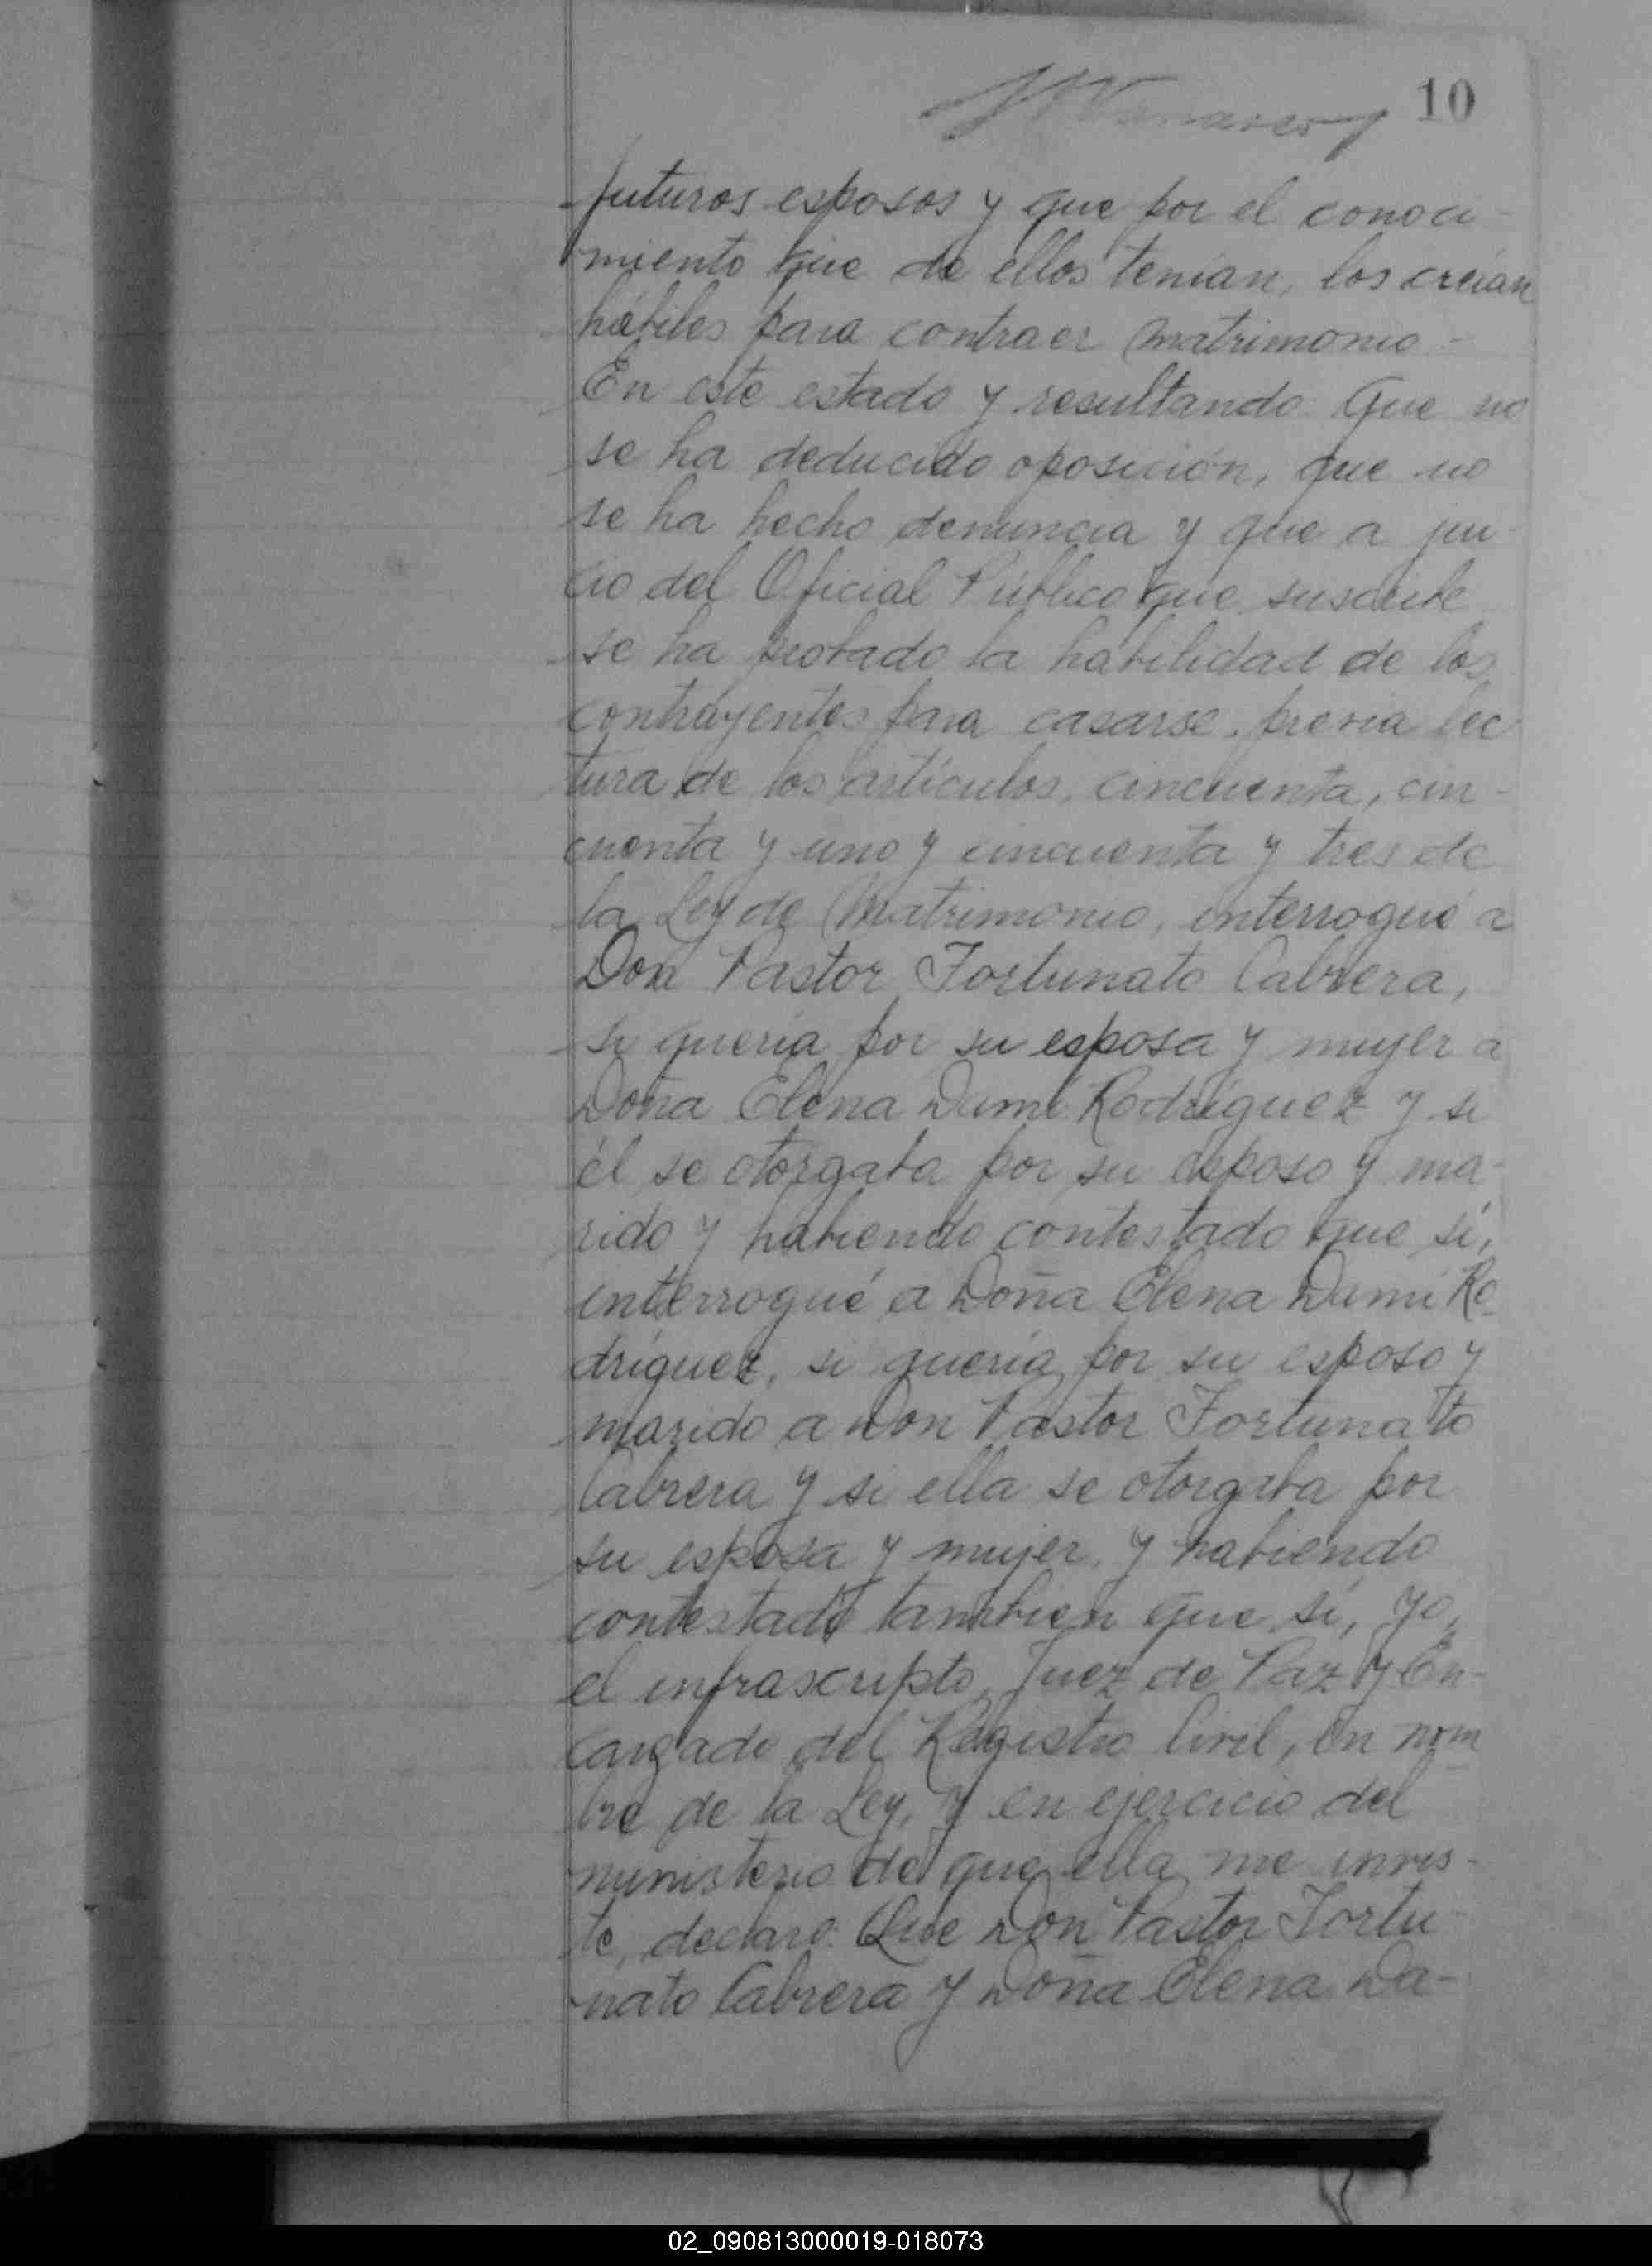 10
futuros esposos y que por el conoci-
miento que de ellos tenían, los creían
hábiles para contraer Matrimonio.-
En este estado y resultando: Que no
se ha deducido oposición, que no
se ha hecho denuncia y que a jui-
cio del Oficial Público que suscribe
se ha probado la habilidad de los
contrayentes para casarse, previa lec-
tura de los artículos, cincuenta, cin-
cuenta y uno y cincuenta y tres de
la Ley de Matrimonio, interrogué a
Don Pastor Fortunato Cabrera,
si quería por su esposa y mujer a
Doña Elena Damí Rodríguez y si
él se otorgaba por su esposo y ma-
rido y habiendo contestado que sí,
interrogué a Doña Elena Damí Ro-
dríguez, si quería por su esposo y
marido a Don Pastor Fortunato
Cabrera y si ella se otorgaba por
su esposa y mujer, y habiendo
contestado tambien que sí, yo,
el infrascripto, Juez de Paz y En-
cargado del Registro Civil, en nom
bre de la Ley, y en ejercicio del
ministerio de que ella me invis-
te, declaro: Que Don Pastor Fortu-
nato Cabrera y Doña Elena Da-
02_090813000019-018073